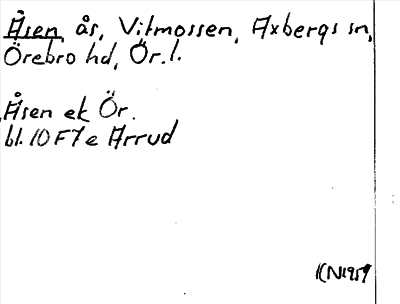 Åsen, ås, Vitmossen, Axbergs sn,
Örebro hd, Ör. l.
Åsen ek Ör.
bl. 10 F 7 e Arrud
KN 1959